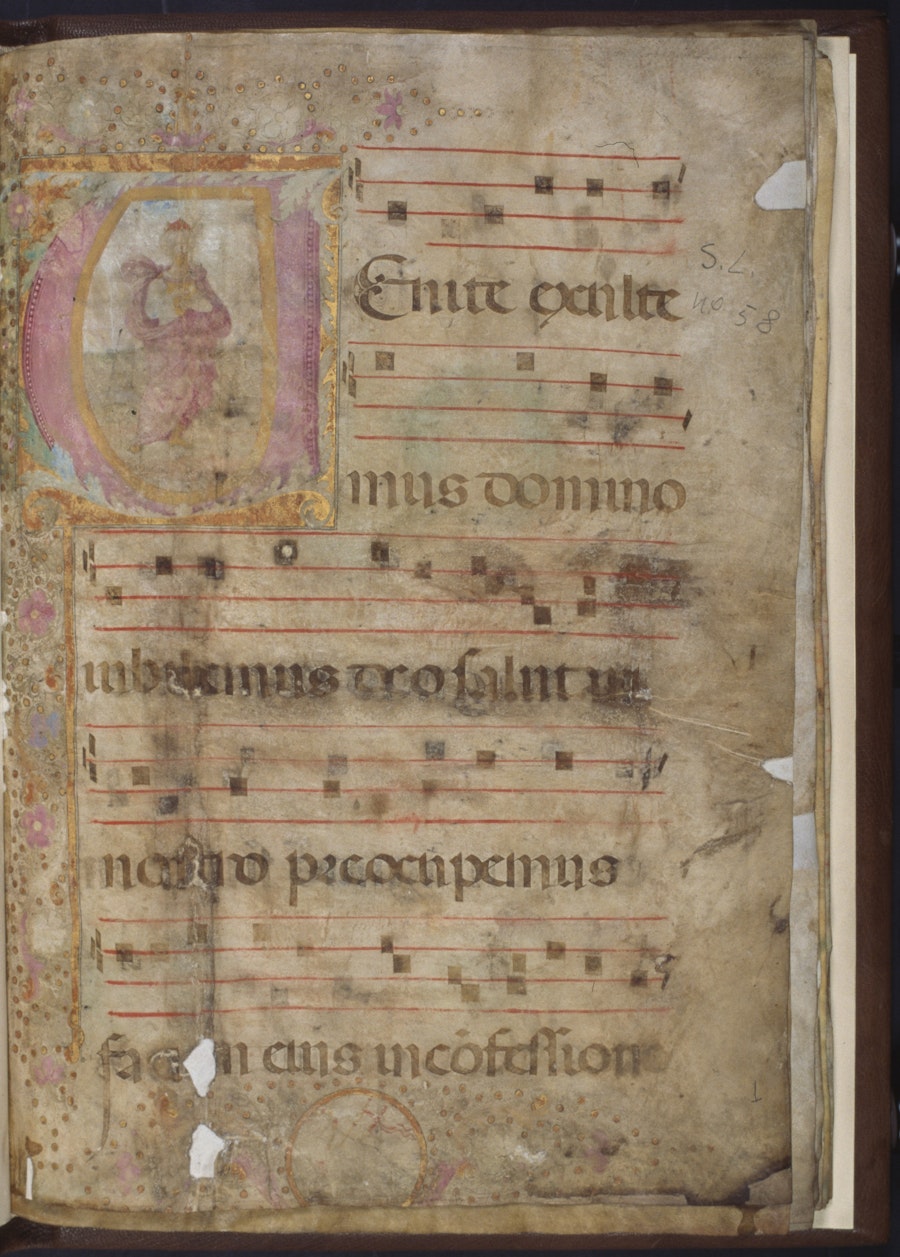 VEnite exulte
S. L.
no 58
mus domino
iubilemus deo salut ari
nostro preocupemus
faciem eius in cõfessione
1